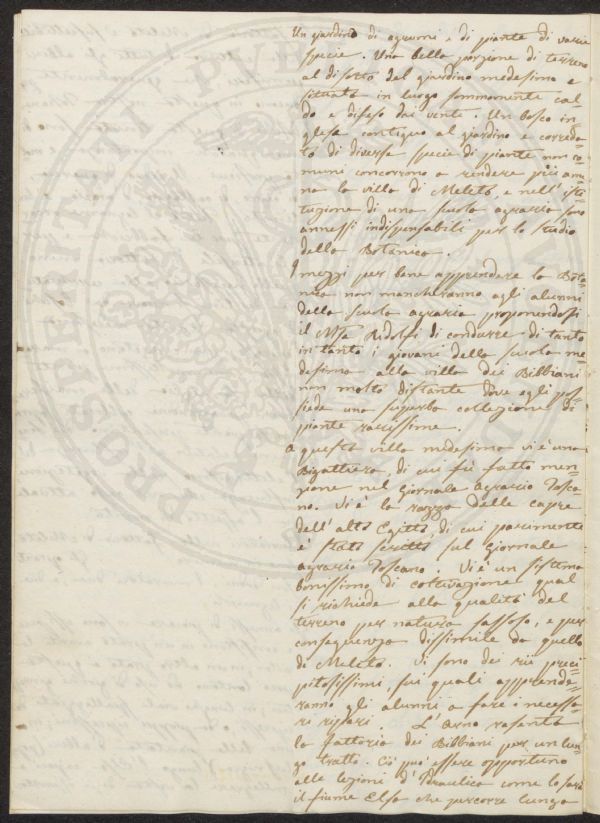 Un giardino di agrumi e di piante di varie
specie. Una bella porzione di terreno
al disotto del giardino medesimo e
situato in luogo sommamente cal=
do e difeso dai venti. Un bosco in=
glese contiguo al giardino e correda=
to di diverse specie di piante non co=
muni concorrono a rendere più ame=
na la villa di Meleto, e nell'isti=
tuzione di una scuola agraria sono
annessi indispensabili per lo studio
della Botanica.
I mezzi per bene apprendere la Bota=
nica non mancheranno agli alunni
della scuola agraria proponendosi
il Mse Ridolfi di condurre di tanto
in tanto i giovani della scuola me=
desima alla villa dei Bibbiani
non molto distante dove egli pos=
siede una superba collezione di
piante rarissime.
A questa villa medesima vi è una
Bigattiera, di cui fù fatto men=
zione nel Giornale Agrario Tosca=
no. Vi è la razza delle capre
dell'alto Egitto, di cui parimente
è stato scritto sul Giornale
agrario Toscano. Vi è un sistema
bonissimo di coltivazione qual
si richiede alla qualità del
terreno per natura sassoso, e per
conseguenza dissimile da quello
di Meleto. Vi sono dei rii preci=
pitosissimi, sui quali apprende=
ranno gli alunni a fare i necessa=
ri ripari. L'Arno rasenta
la fattoria dei Bibbiani per un lun=
go tratto. Ciò può essere opportuno
alle lezioni d'Idraulica come lo sarà
il fiume Elsa che percorre lungo
PROSPERITATI PVBL